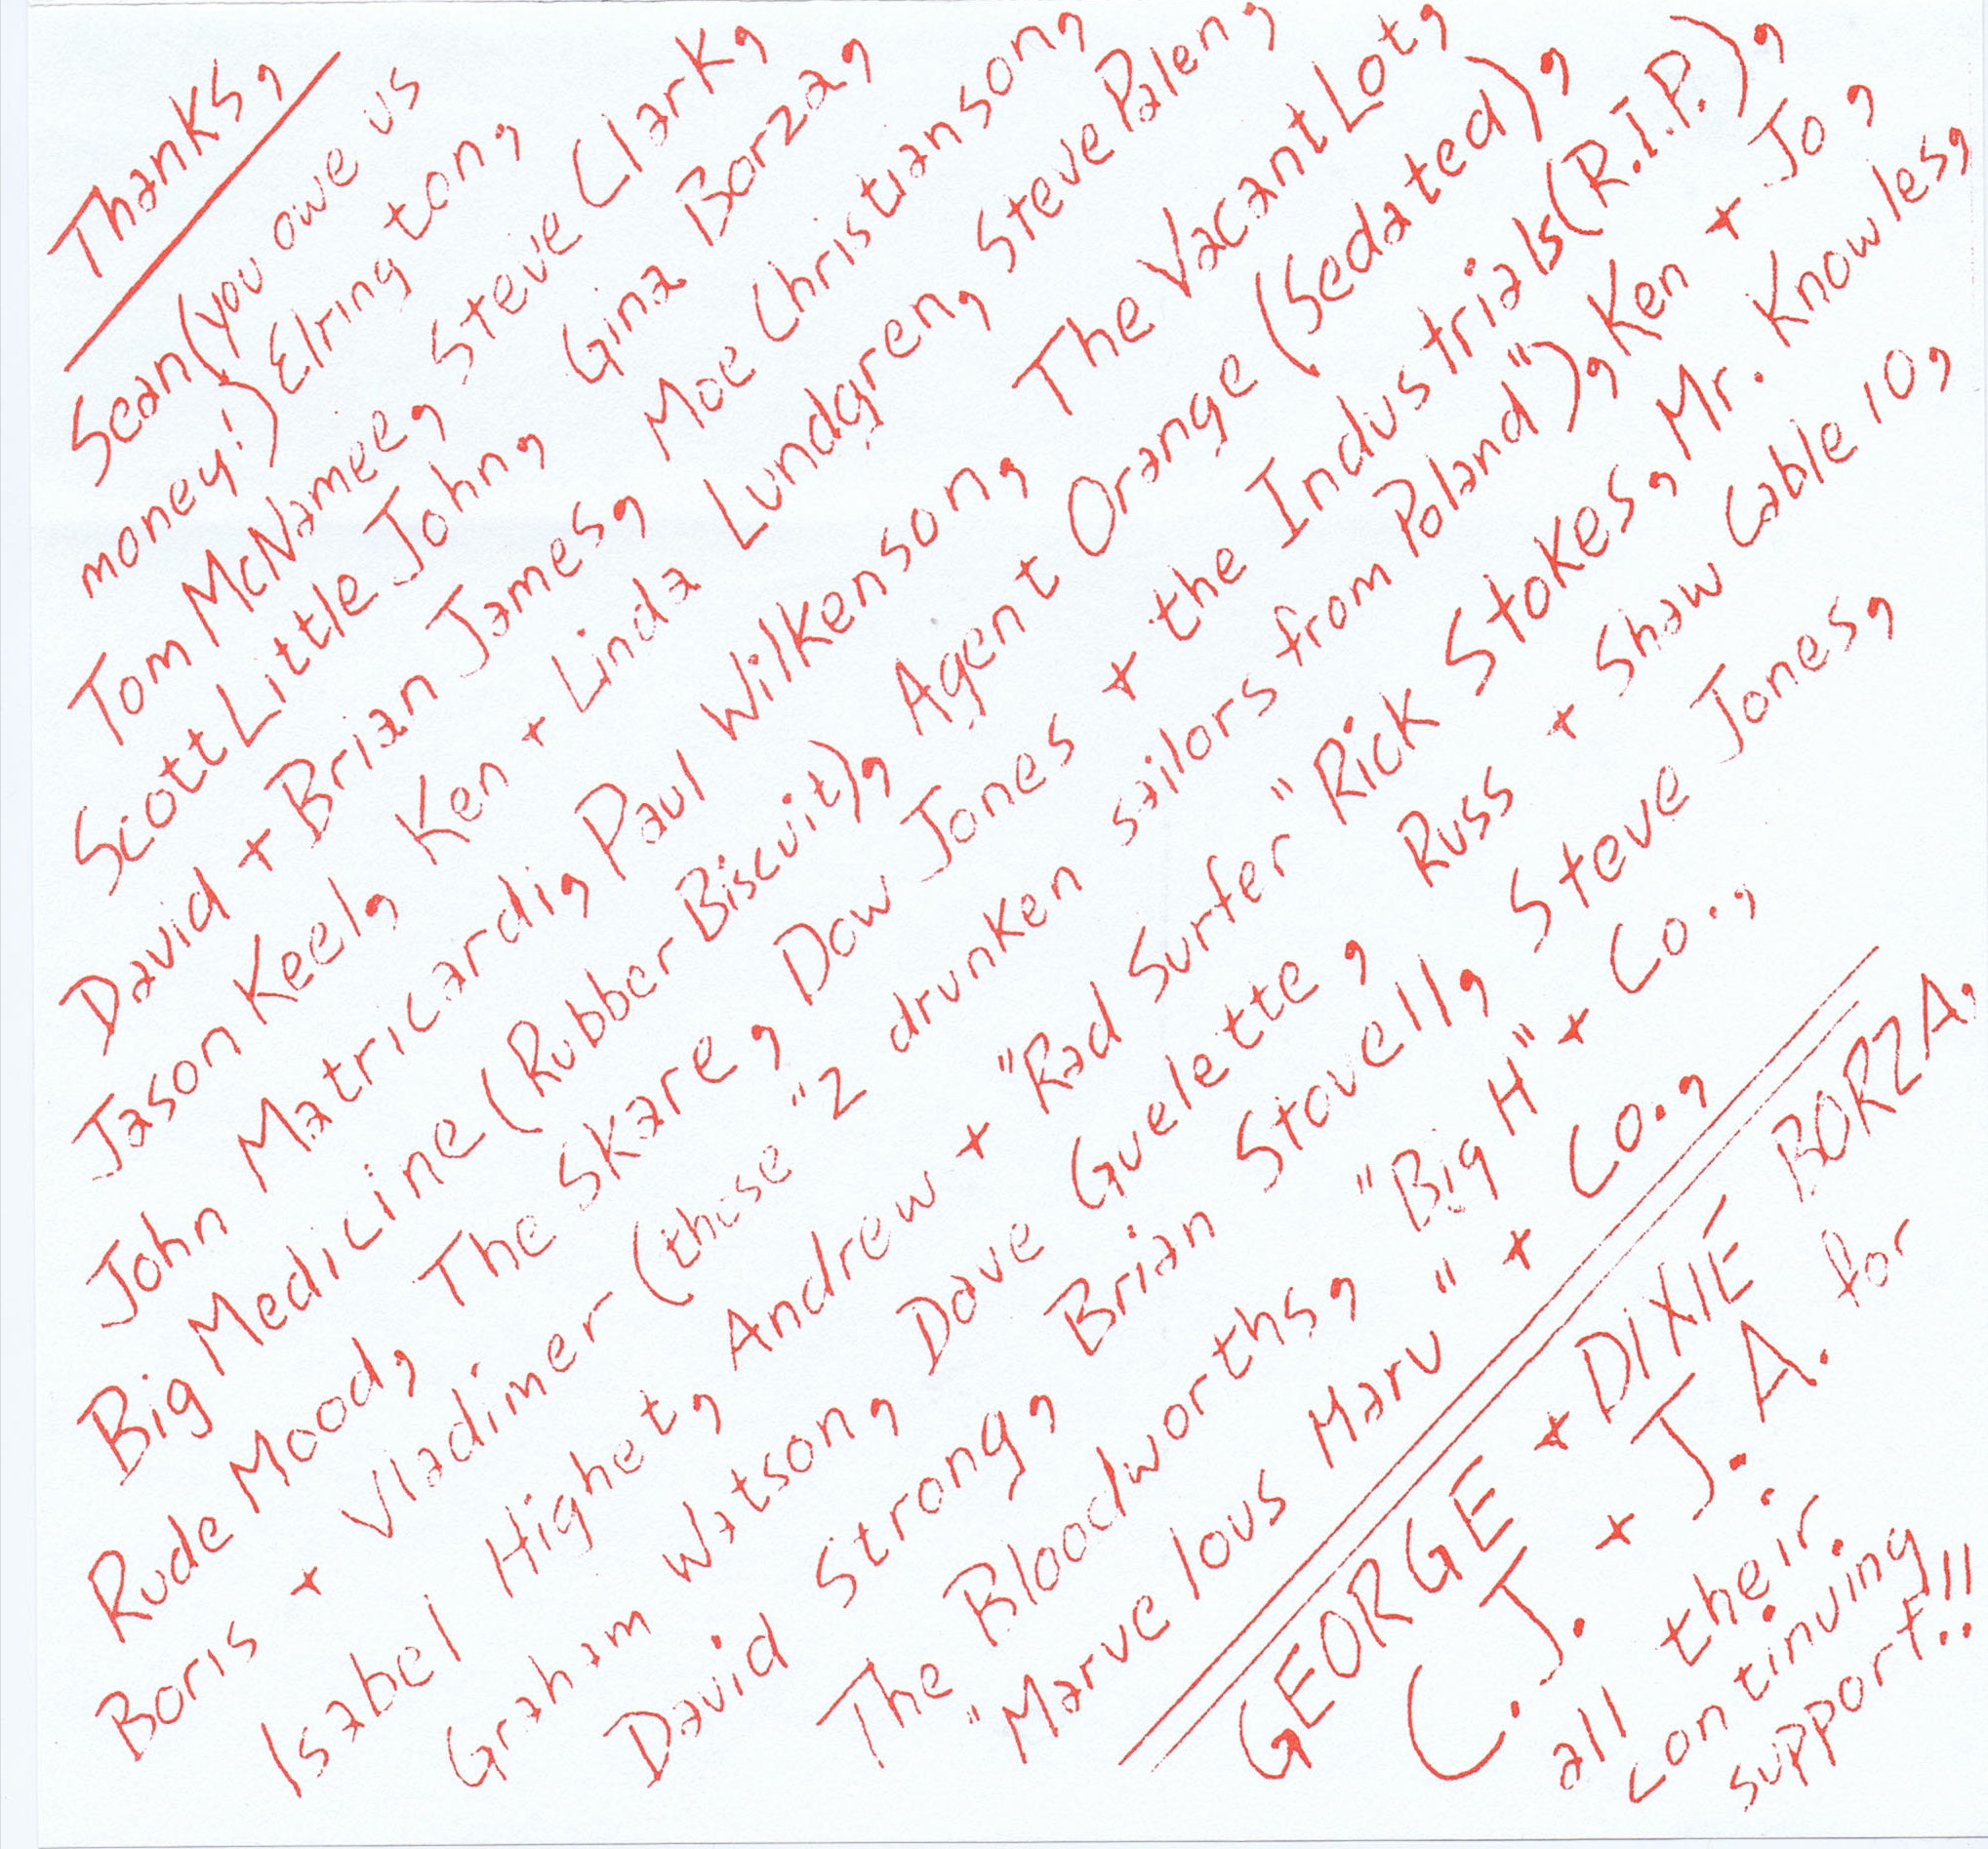 Thanks,
Sean (you owe us
money!) Elrington,
Tom McNamee, Steve Clark,
Scott Little John, Gina Borza,
David + Brian James, Moe Christianson,
Jason Keel, Ken + Linda Lundgren, Steve Palen,
John Matricardi, Paul Wilkenson, The Vacant Lot,
Big Medicine (Rubber Biscuit), Agent Orange (Sedated),
Rude Mood, The Skare, Dow Jones + the Industrials (R.I.P.),
Boris + Vladimer (those "2 drunken sailors from Poland"), Ken + Jo,
Isabel Highet, Andrew + "Rad Surfer" Rick Stokes, Mr. Knowles,
Graham Watson, Dave Guelette, Russ + Shaw Cable 10,
David Strong, Brian Stovell, Steve Jones,
The Bloodworths, "Big H" + Co.,
"Marvelous Marv" + Co.,
GEORGE + DIXIE BORZA,
C.J. + J.A. for
all their
continuing
support!!